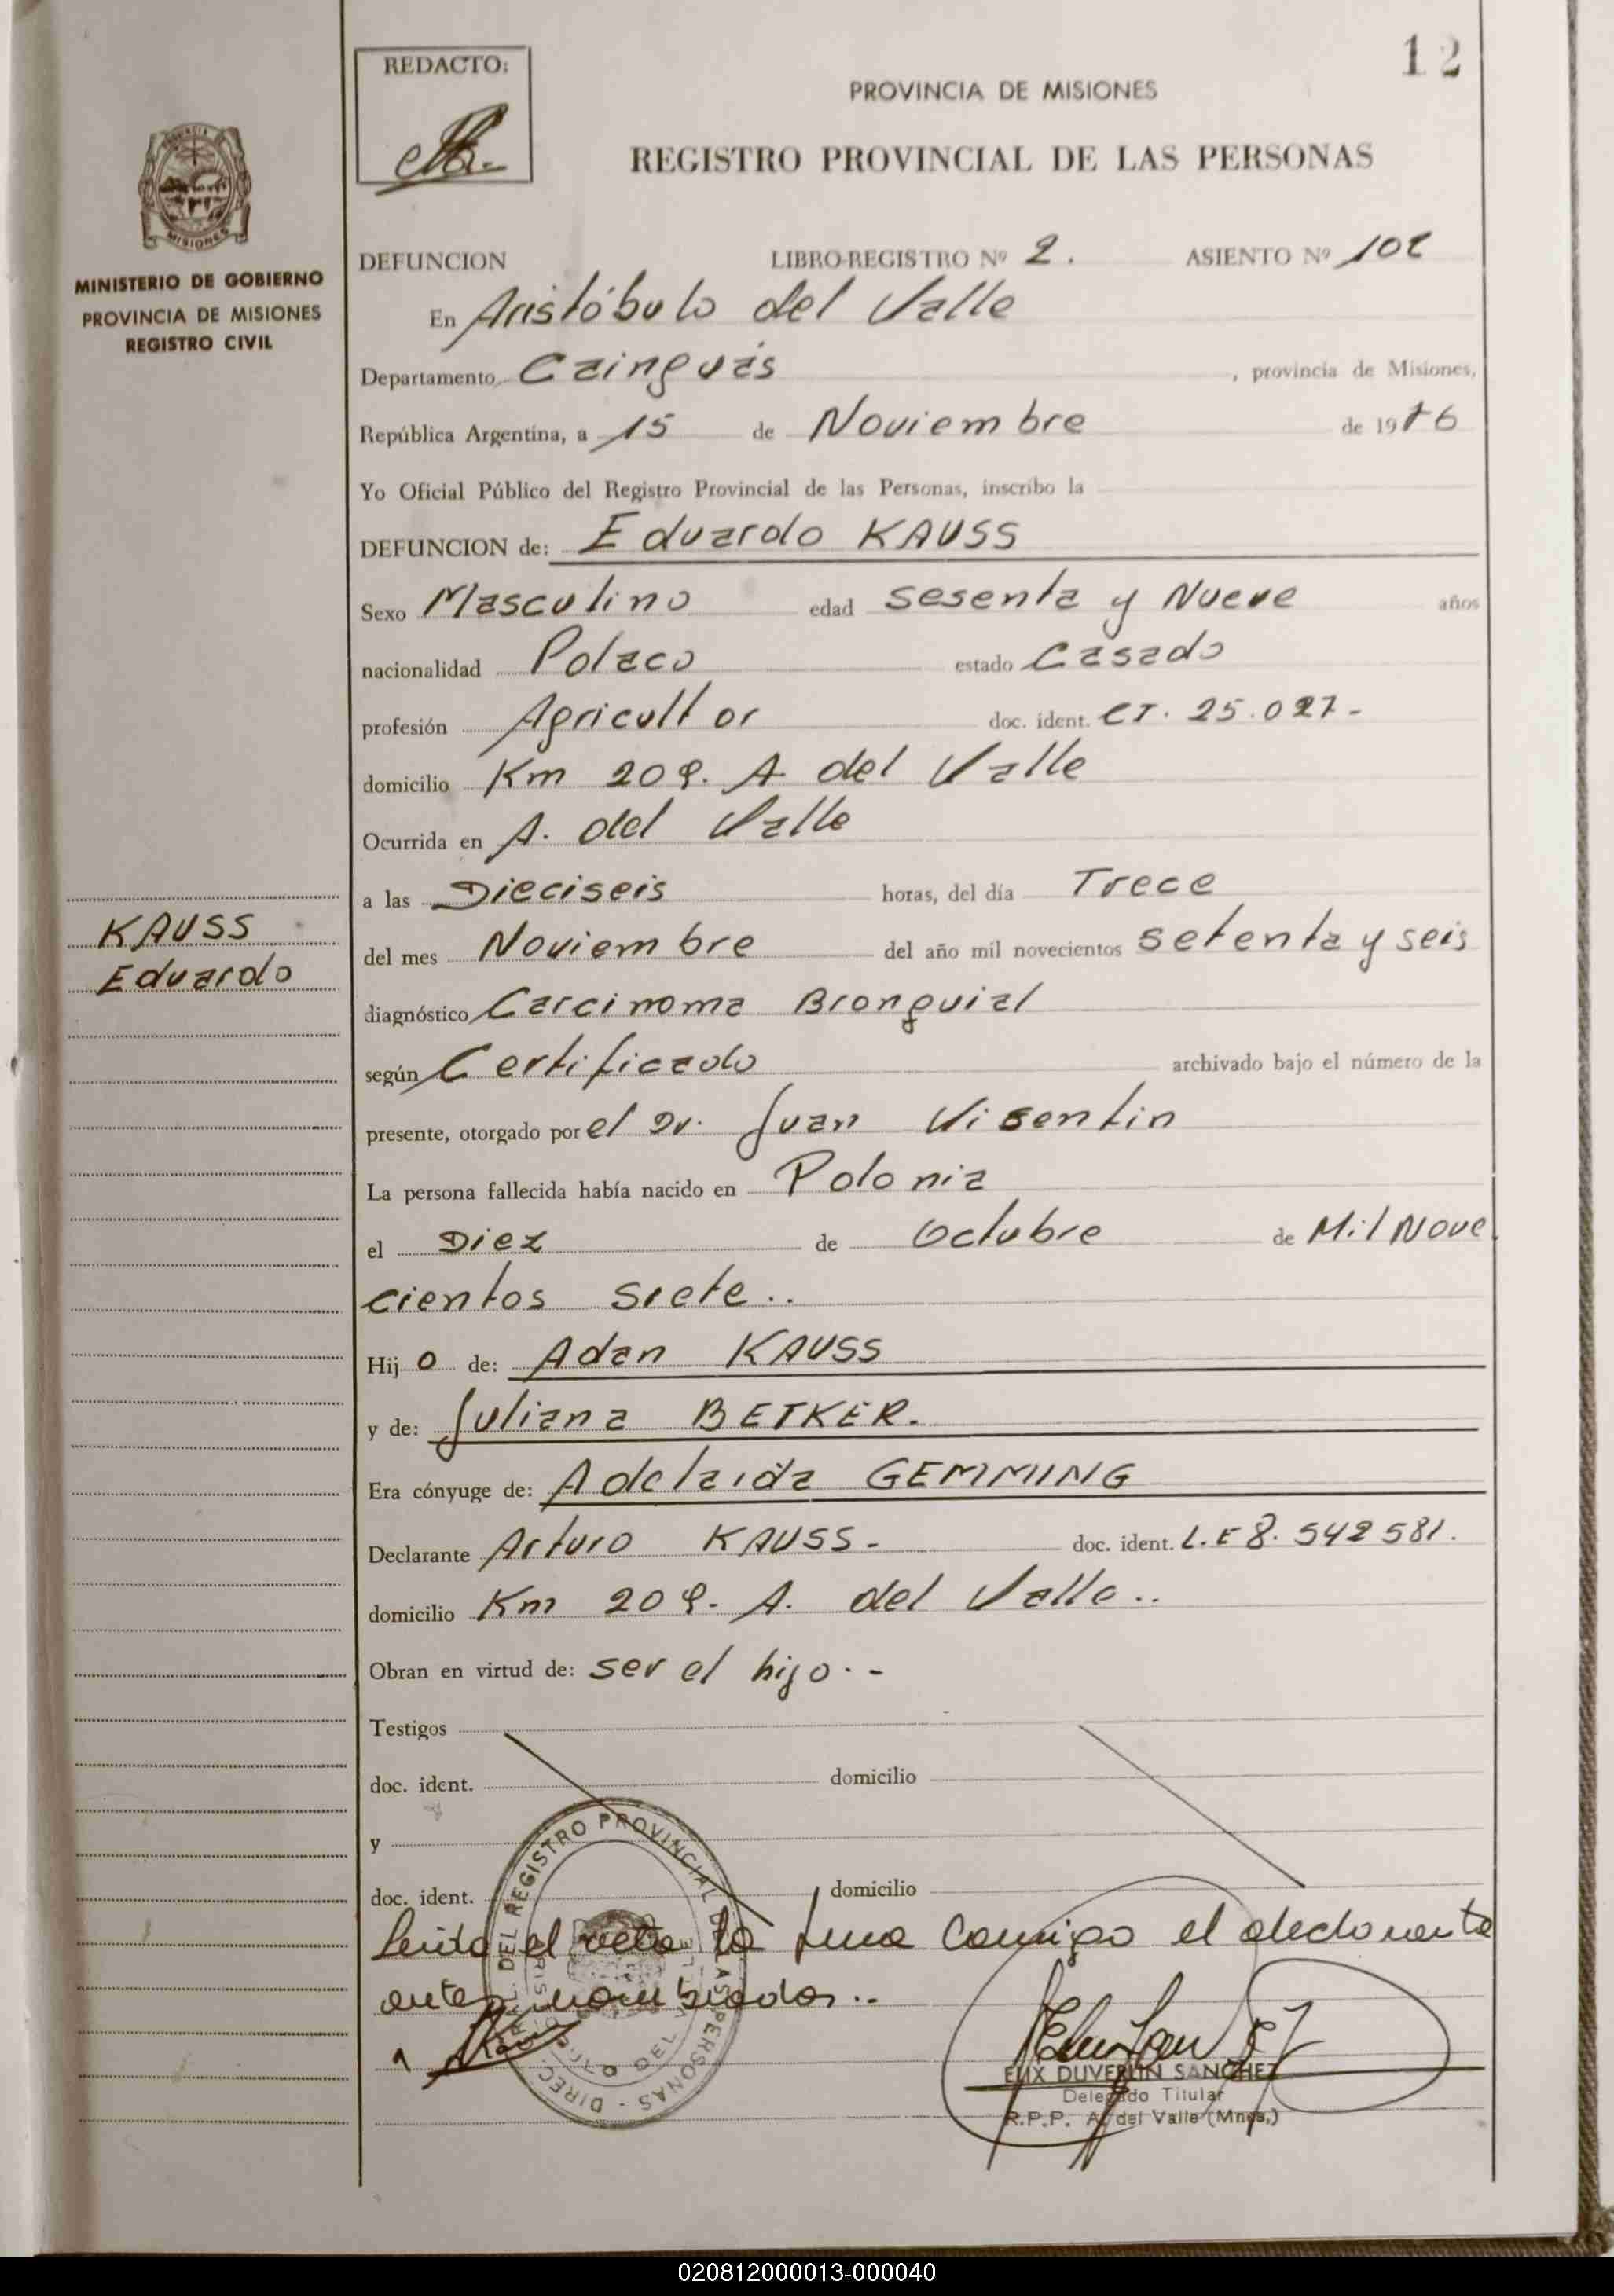 12
REDACTO:
PROVINCIA DE MISIONES
REGISTRO PROVINCIAL DE LAS PERSONAS
MISIONES
MINISTERIO DE GOBIERNO
PROVINCIA DE MISIONES
REGISTRO CIVIL
DEFUNCION LIBRO-REGISTRO Nº 2. ASIENTO Nº 102
En Aristóbulo del Valle
Departamento Cainguás , provincia de Misiones,
República Argentina, a 15 de Noviembre de 1976
Yo Oficial Público del Registro Provincial de las Personas, inscribo la
DEFUNCION de: Eduardo KAUSS
Sexo Masculino edad Sesenta y Nueve años
nacionalidad Polaco estado Casado
profesión Agricultor doc. ident. CI. 25.027-
domicilio Km 209. A del Valle
Ocurrida en A. del Valle
a las Dieciseis horas, del día Trece
KAUSS
Eduardo
del mes Noviembre del año mil novecientos setenta y seis
diagnóstico Carcinoma Bronquial
según Certificado archivado bajo el número de la
presente, otorgado por el Dr. Juan Visentin
La persona fallecida había nacido en Polonia
el Diez de Octubre de Mil Nove
cientos siete..
Hij o de: Adan KAUSS
y de: Juliana BETKER.
Era cónyuge de: Adelaida GEMMING
Declarante Arturo KAUSS- doc. ident. L.E 8. 542 581.
domicilio Km 209. A. del Valle..
Obran en virtud de: ser el hijo.-
Testigos
doc. ident. domicilio
y
doc. ident. domicilio
DIREC. DEL REGISTRO PROVINCIAL DE LAS PERSONAS
Leida el acta la firma conmigo el declarante
antes nombrado..
FELIX DUVERLIN SANCHEZ
Delegado Titular
R.P.P. A. del Valle (Mnes.)
020812000013-000040